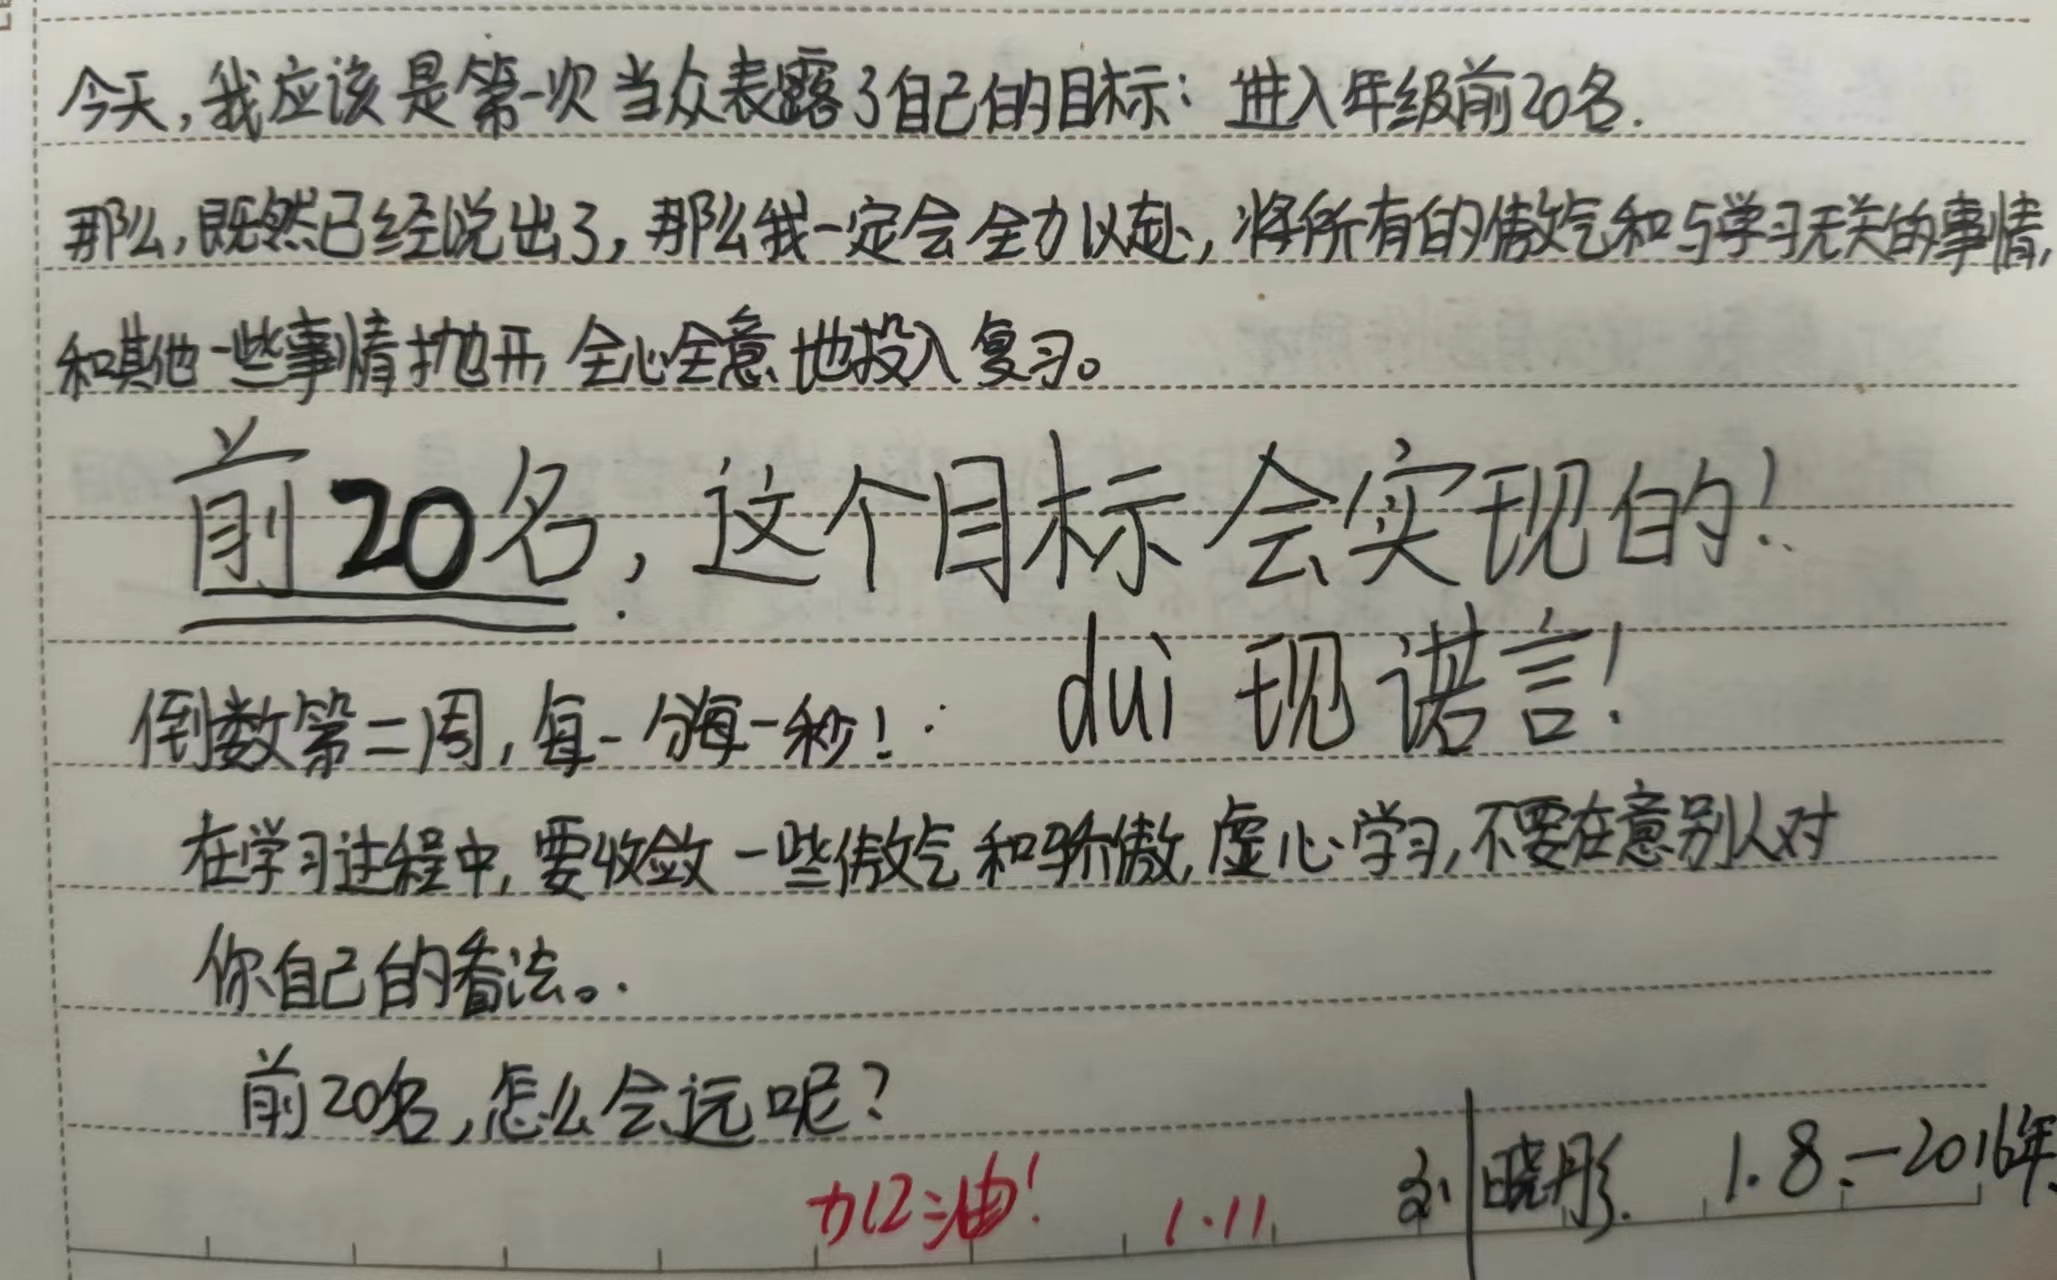 今天,我应该是第一次当众表露了自己的目标:进入年级前20名.
那么,既然已经说出了,那么我一定会全力以赴,将所有的傲气和与学习无关的事情,
和其他一些事情抛开,全心全意地投入复习。
前20名,这个目标会实现的!
dui现诺言!
倒数第二周,每一分每一秒!
在学习过程中,要收敛一些傲气和骄傲,虚心学习,不要在意别人对
你自己的看法。
前20名,怎么会远呢?
刘晓彤. 1.8.—2016年.
加油! 1.11.